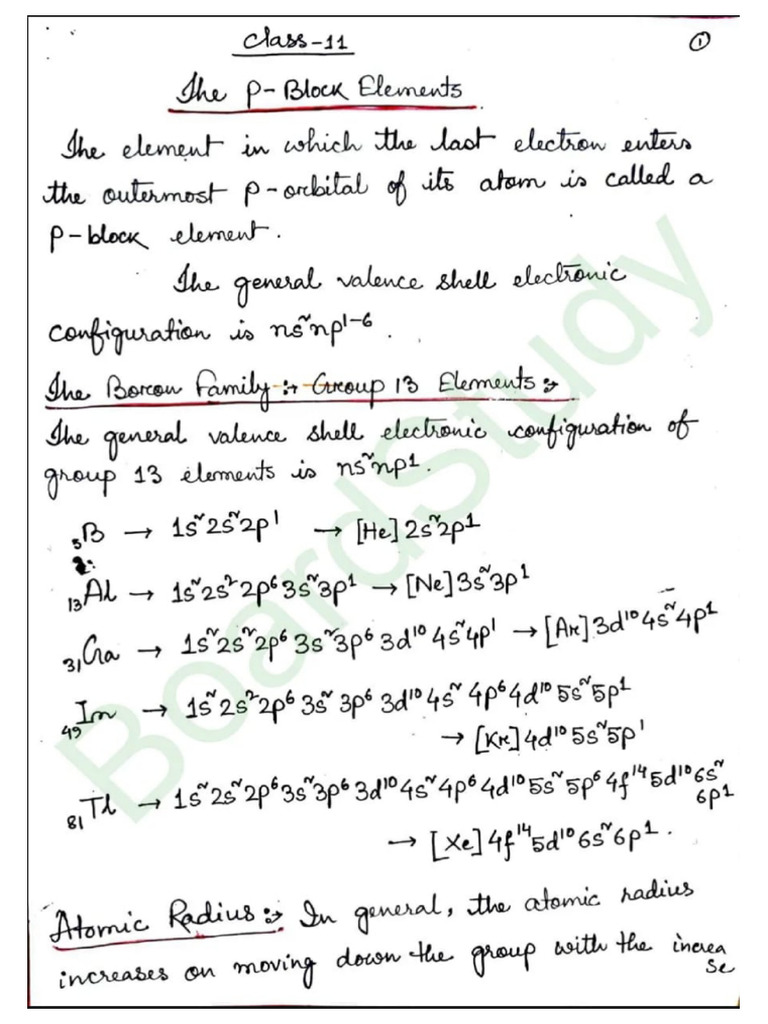 Class-11
①
The P-Block Elements
The element in which the last electron enters
the outermost p-orbital of its atom is called a
p-block element.
The general valence shell electronic
configuration is ns²np¹⁻⁶.
The Boron Family :→ Group 13 Elements :→
The general valence shell electronic configuration of
group 13 elements is ns²np1.
₅B → 1s²2s²2p¹ → [He]2s²2p1
₁₃Al → 1s²2s²2p⁶3s²3p1 → [Ne]3s²3p1
₃₁Ga → 1s²2s²2p⁶3s²3p⁶3d¹⁰4s²4p¹ → [Ar]3d¹⁰4s²4p1
₄₉In → 1s²2s²2p⁶3s²3p⁶3d¹⁰4s²4p⁶4d¹⁰5s²5p1
→ [Kr]4d¹⁰5s²5p¹
₈₁Tl → 1s²2s²2p⁶3s²3p⁶3d¹⁰4s²4p⁶4d¹⁰5s²5p⁶4f¹⁴5d¹⁰6s²
6p1
→ [Xe]4f¹⁴5d¹⁰6s²6p1.
Atomic Radius :→ In general, the atomic radius
increases on moving down the group with the increa
se
BoardStudy